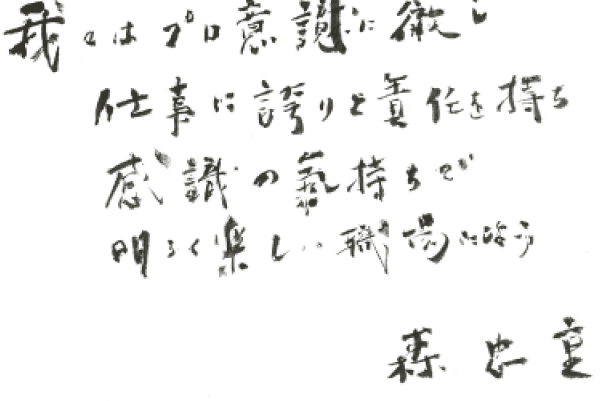 我々はプロ意識に徹し
仕事に誇りと責任を持ち
感謝の氣持ちで
明るく楽しい職場にしよう
忠重